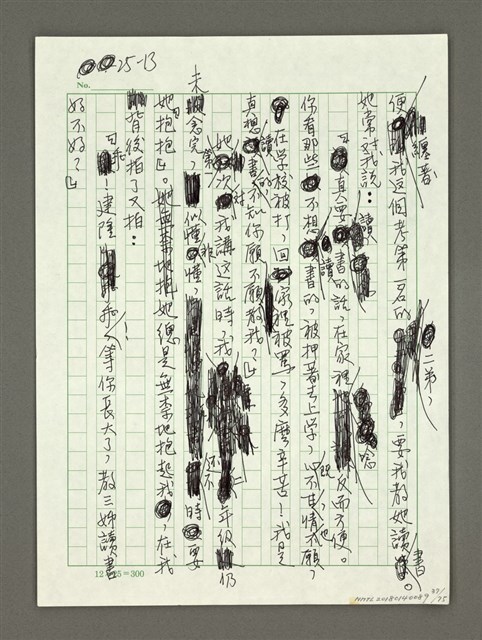 25-13
No.
便纏著我這個考第一名的二弟，要我教她讀書。
她常對我說：
「真要讀書的話，在家裡唸反而方便。
你看那些不想讀書的，被押著去上學，心不甘情不願，
在学校被打，回家裡被罵，多麼辛苦！我是
真想讀書的，不知你願不願教我？」
她第一次對我講这話時，我還不年級仍
未唸完，似懂非懂，時要
她抱抱。她總是無奈地抱起我，在我
背後拍了又拍：
「乖！建隆乖！等你長大了，教三姊讀書
好不好？」
12×25=300
NMTL20180140089